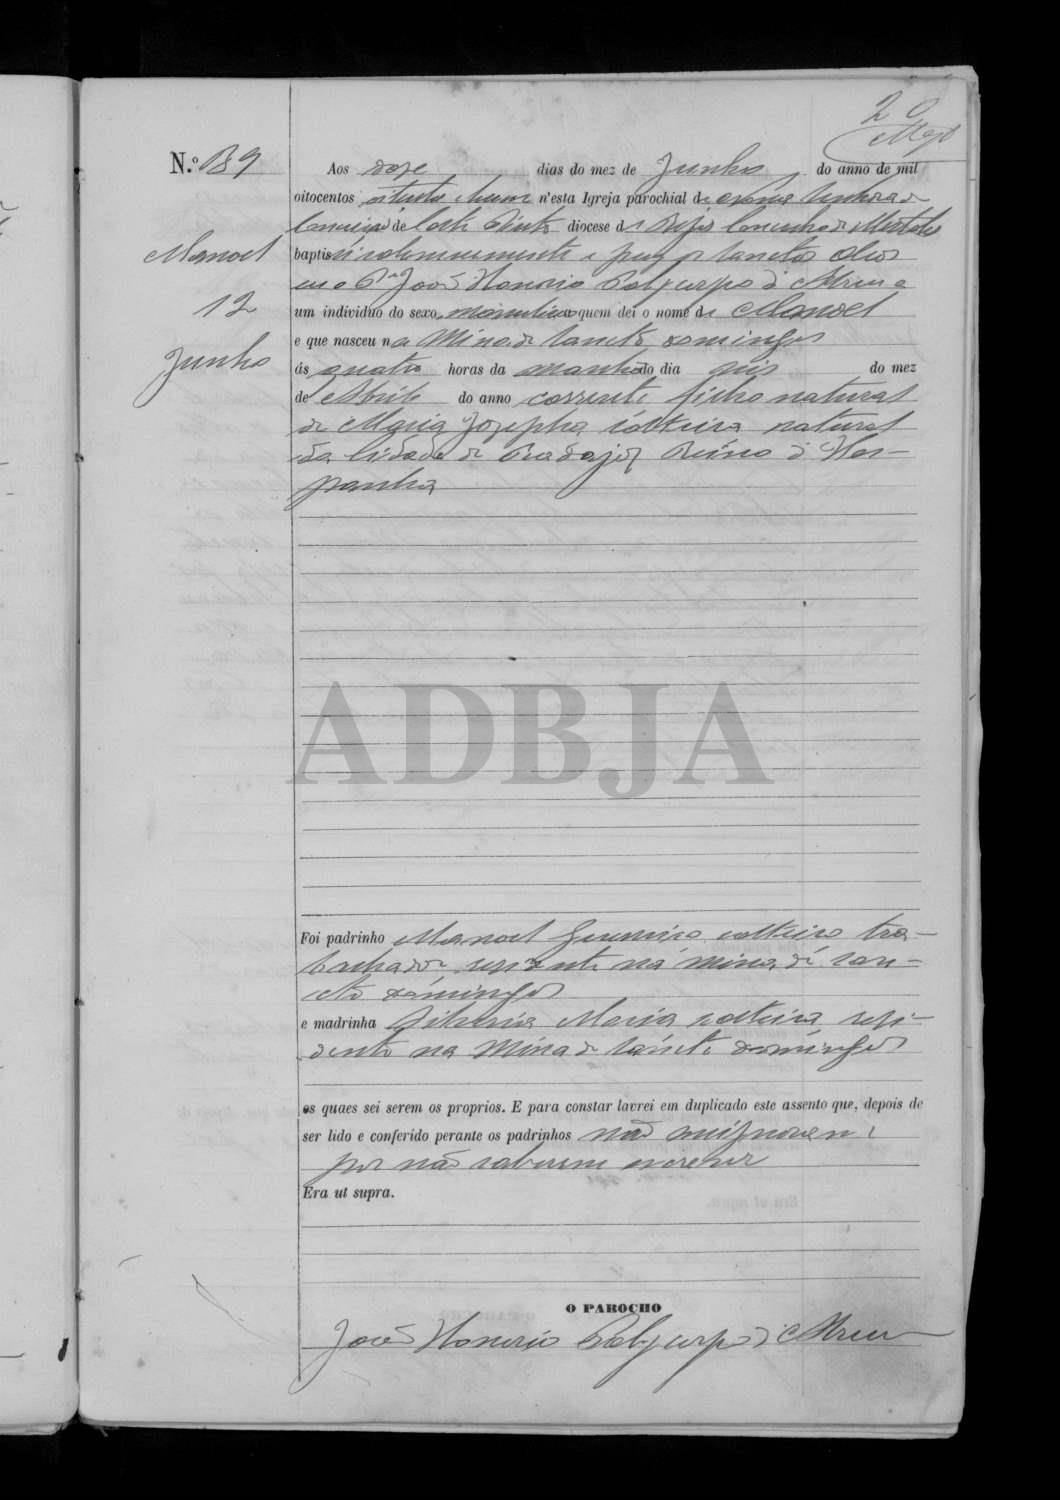 20
N.º 139
Aos doze dias do mez de Junho do anno de mil
oitocentos oitenta e hum n'esta Igreja parochial de Nossa Senhora da
Conceição de Corte do Pinto diocese de Beja Concelho de Mertola
Manoel
baptisei solemnemente e puz os Sanctos Oleos
eu o P.e José Honorio Polycarpo d'Abreu a
12
um individuo do sexo masculino a quem dei o nome de Manoel
e que nasceu na Mina de Sancto Domingos
Junho
ás quatro horas da manhã do dia do mez
de Abril do anno corrente filho natural
de Maria Josepha solteira natural
da Cidade de Badajoz Reino d'Hes-
panha
ADBJA
Foi padrinho Manoel Guerreiro solteiro tra-
balhador residente na Mina de San-
cto Domingos
e madrinha Maria solteira resi-
dente na Mina de Sancto Domingos
os quaes sei serem os proprios. E para constar lavrei em duplicado este assento que, depois de
ser lido e conferido perante os padrinhos não assignaram
por não saberem escrever
Era ut supra.
O PAROCHO
José Honorio Polycarpo d'Abreu